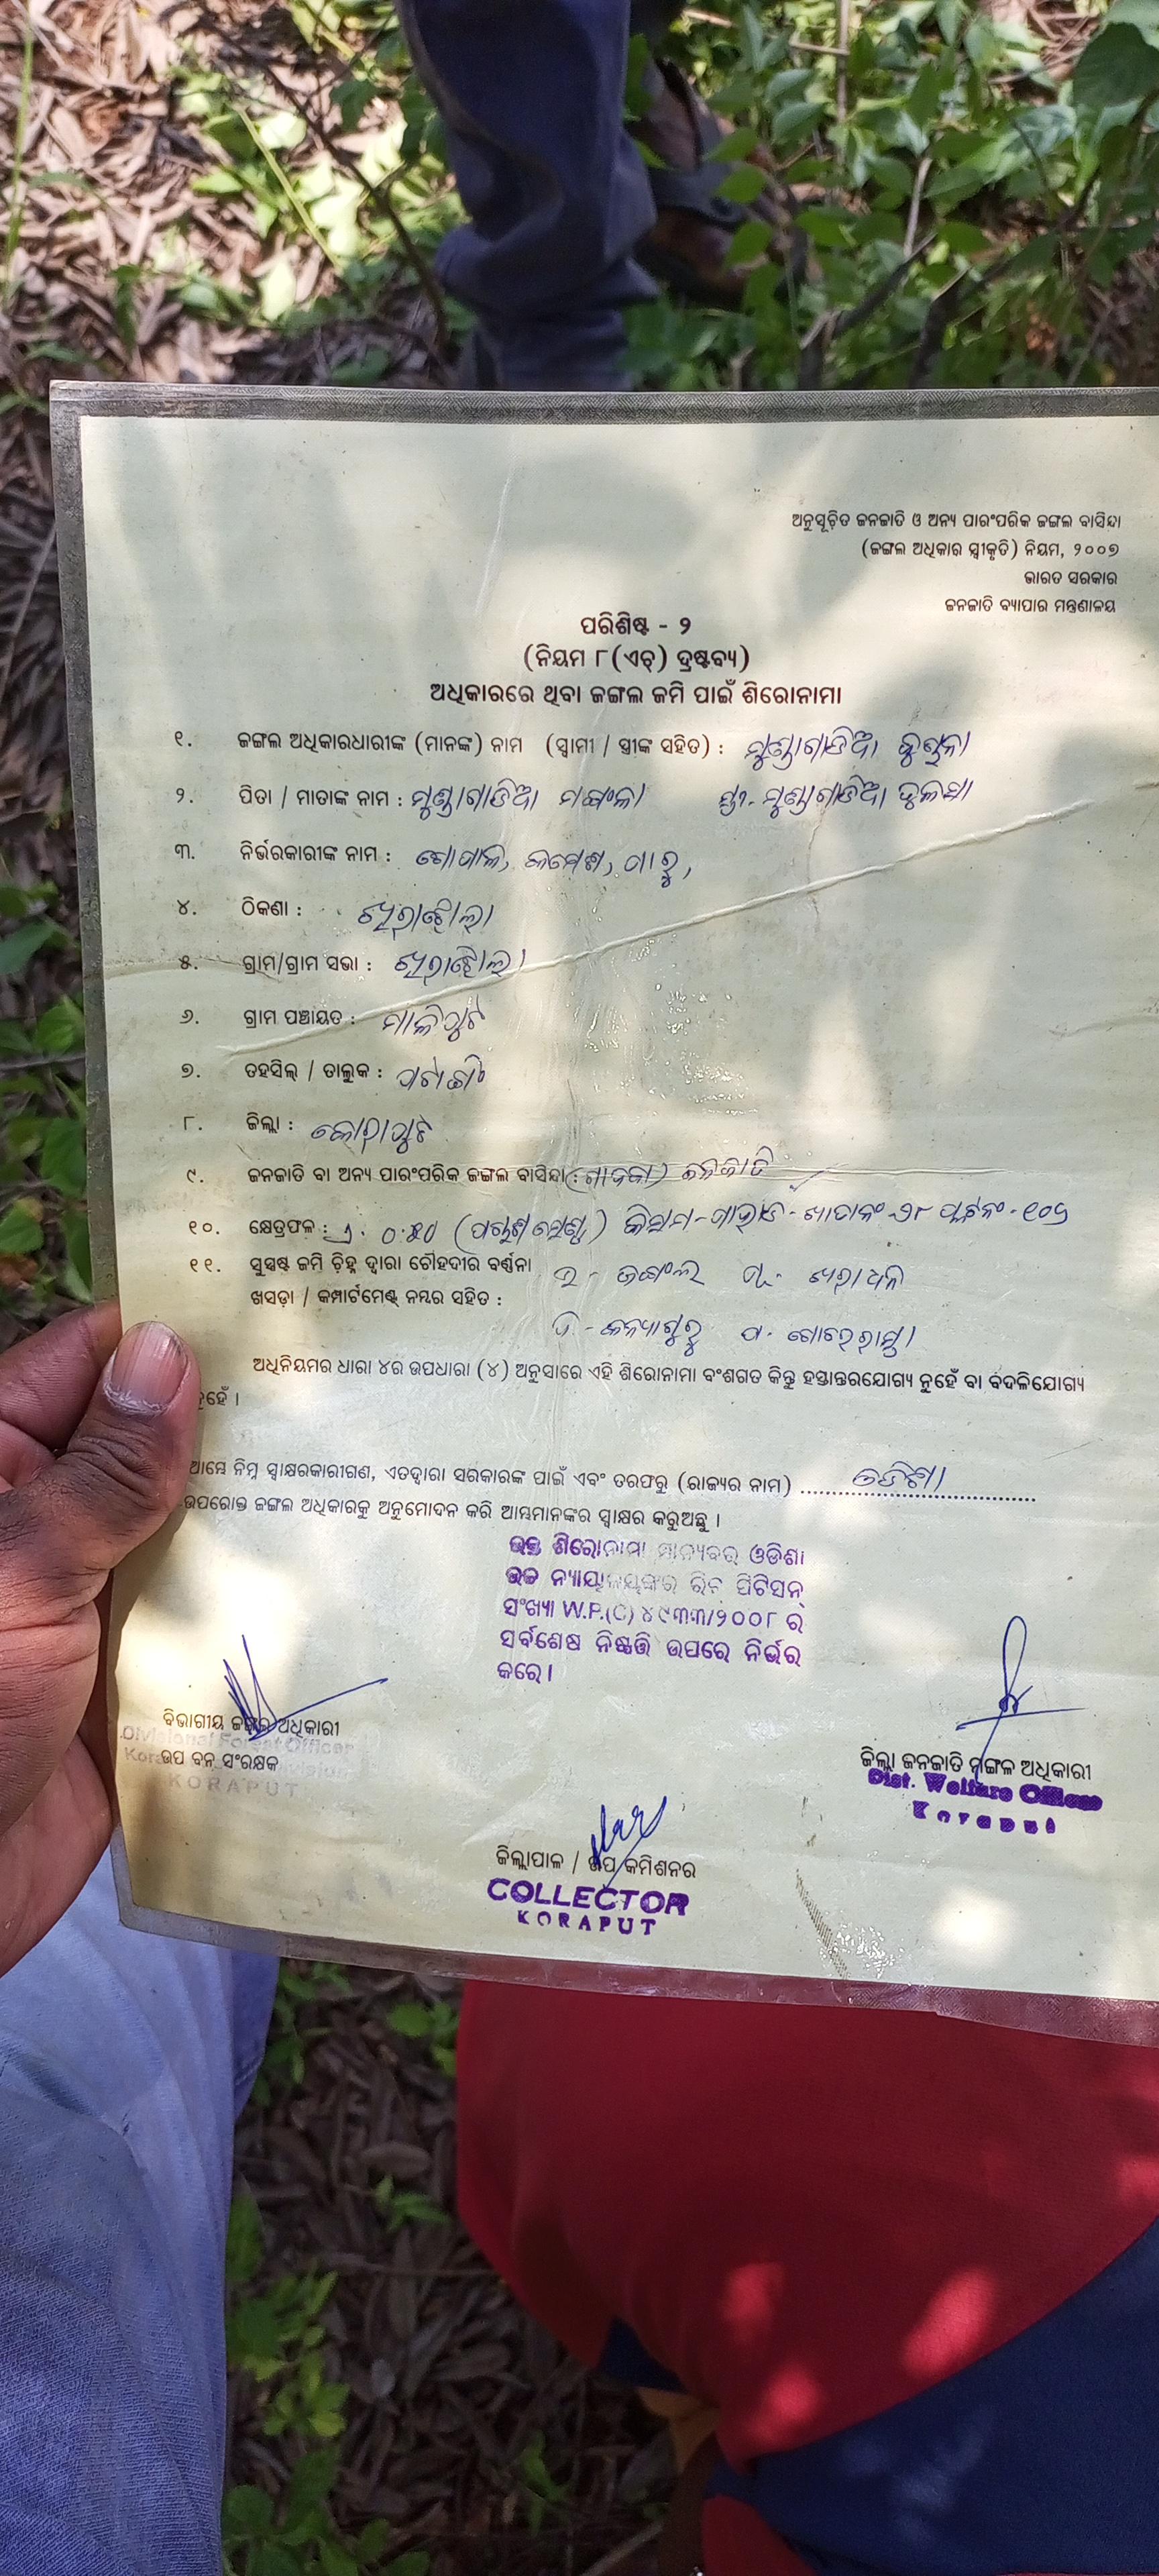 ଅନୁସୂଚିତ ଜନଜାତି ଓ ଅନ୍ୟ ପାରଂପରିକ ଜଙ୍ଗଲ ବାସିନ୍ଦା
(ଜଙ୍ଗଲ ଅଧିକାର ସ୍ୱୀକୃତି) ନିୟମ, ୨୦୦୭
ଭାରତ ସରକାର
ଜନଜାତି ବ୍ୟାପାର ମନ୍ତ୍ରଣାଳୟ
ପରିଶିଷ୍ଟ - ୨
(ନିୟମ ୮(ଏଚ୍) ଦ୍ରଷ୍ଟବ୍ୟ)
ଅଧିକାରରେ ଥିବା ଜଙ୍ଗଲ ଜମି ପାଇଁ ଶିରୋନାମା
୧. ଜଙ୍ଗଲ ଅଧିକାରଧାରୀଙ୍କ (ମାନଙ୍କ) ନାମ (ସ୍ୱାମୀ / ସ୍ତ୍ରୀଙ୍କ ସହିତ) : ମୁଣ୍ଡାଗାଡିଆ
୨. ପିତା / ମାତାଙ୍କ ନାମ : ମୁଣ୍ଡାଗାଡିଆ ମଙ୍ଗଳା ସ୍ତ୍ରୀ- ମୁଣ୍ଡାଗାଡିଆ
୩. ନିର୍ଭରକାରୀଙ୍କ ନାମ : ଗୋପାଳ,
୪. ଠିକଣା :
୫. ଗ୍ରାମ/ଗ୍ରାମ ସଭା :
୬. ଗ୍ରାମ ପଞ୍ଚାୟତ : ମାଳିପୁଟ
୭. ତହସିଲ୍ / ତାଲୁକ : ପଟାଙ୍ଗି
୮. ଜିଲ୍ଲା : କୋରାପୁଟ
୯. ଜନଜାତି ବା ଅନ୍ୟ ପାରଂପରିକ ଜଙ୍ଗଲ ବାସିନ୍ଦା : (ଗାଦବା) ଜନଜାତି
୧୦. କ୍ଷେତ୍ରଫଳ : ଏ. ୦.୫୦ (ପଚାଶ
୧୧. ସୁସ୍ପଷ୍ଟ ଜମି ଚିହ୍ନ ଦ୍ୱାରା ଚୌହଦୀର ବର୍ଣ୍ଣନା ଉ - ଜଙ୍ଗଲ ପୂ-
ଖସଡ଼ା / କମ୍ପାର୍ଟମେଣ୍ଟ୍ ନମ୍ବର ସହିତ : ଦ - ପ -
ଅଧିନିୟମର ଧାରା ୪ର ଉପଧାରା (୪) ଅନୁସାରେ ଏହି ଶିରୋନାମା ବଂଶଗତ କିନ୍ତୁ ହସ୍ତାନ୍ତରଯୋଗ୍ୟ ନୁହେଁ ବା ବଦଳିଯୋଗ୍ୟ
ନୁହେଁ ।
ଆମ୍ଭେ ନିମ୍ନ ସ୍ୱାକ୍ଷରକାରୀଗଣ, ଏତଦ୍ଦ୍ୱାରା ସରକାରଙ୍କ ପାଇଁ ଏବଂ ତରଫରୁ (ରାଜ୍ୟର ନାମ) ଓଡିଶା
ଉପରୋକ୍ତ ଜଙ୍ଗଲ ଅଧିକାରକୁ ଅନୁମୋଦନ କରି ଆମ୍ଭମାନଙ୍କର ସ୍ୱାକ୍ଷର କରୁଅଛୁ ।
ଉକ୍ତ ଶିରୋନାମା ମାନ୍ୟବର ଓଡିଶା
ଉଚ୍ଚ ନ୍ୟାୟାଳୟଙ୍କର ରିଟ୍ ପିଟିସନ୍
ସଂଖ୍ୟା W.P.(C) ୪୯୩୩/୨୦୦୮ ର
ସର୍ବଶେଷ ନିଷ୍ପତ୍ତି ଉପରେ ନିର୍ଭର
କରେ।
ବିଭାଗୀୟ ଜଙ୍ଗଲ ଅଧିକାରୀ
Divisional Forest Officer
ଉପ ବନ ସଂରକ୍ଷକ
KORAPUT
ଜିଲ୍ଲା ଜନଜାତି ମଙ୍ଗଳ ଅଧିକାରୀ
Dist. Welfare Officer
Koraput
ଜିଲ୍ଲାପାଳ / ଉପ କମିଶନର
COLLECTOR
KORAPUT